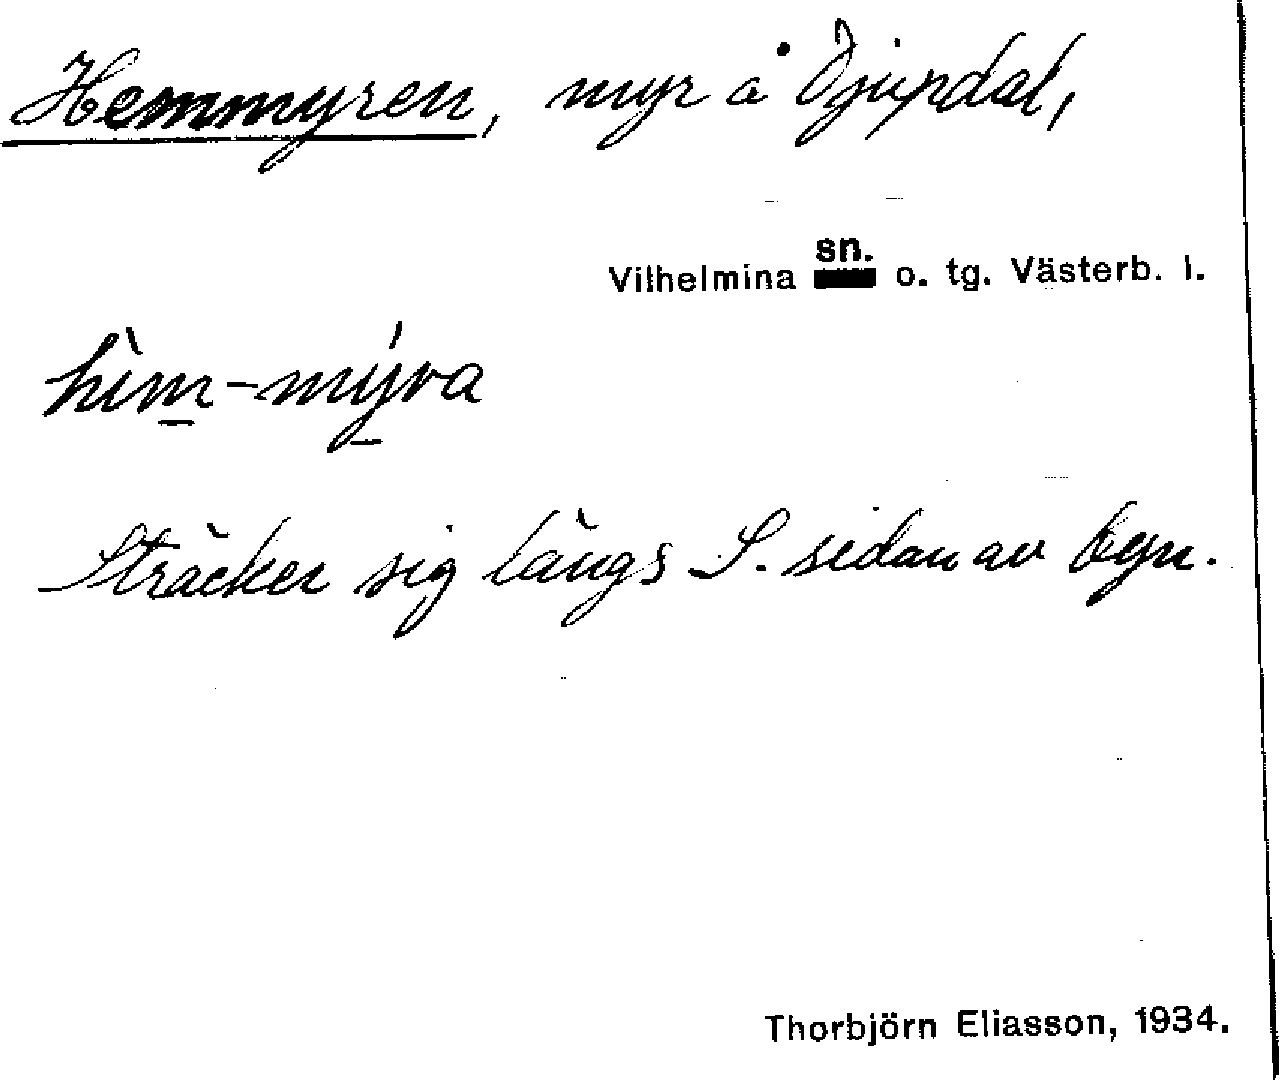 Hemmyren, myr å Djupdal,
Vilhelmina sn. o. tg. Västerb. l.
hìm-mýra
Sträcker sig längs S. sidan av byn.
Thorbjörn Eliasson, 1934.